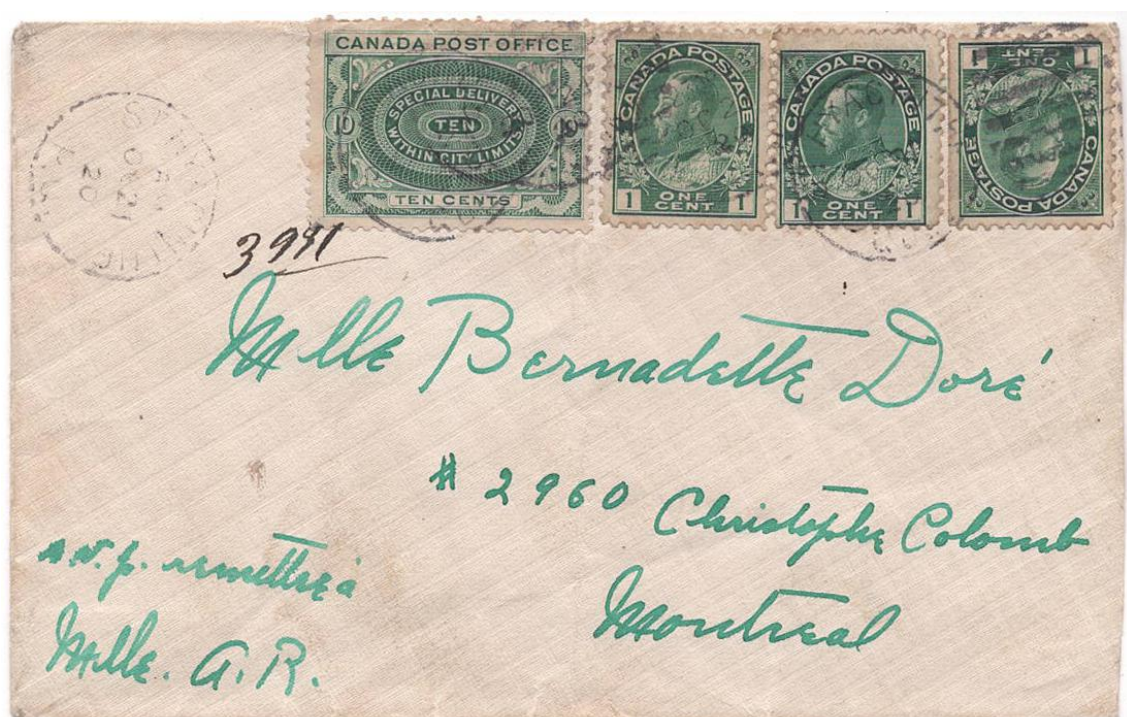 CANADA POST OFFICE
SPECIAL DELIVERY
10 TEN 10
WITHIN CITY LIMITS
TEN CENTS
CANADA POSTAGE
1 ONE CENT 1
CANADA POSTAGE
1 ONE CENT 1
CANADA POSTAGE
1 ONE CENT 1
21
20
Mlle Bernadette Doré
# 2960 Christophe Colomb
Montreal
Mlle. A. R.